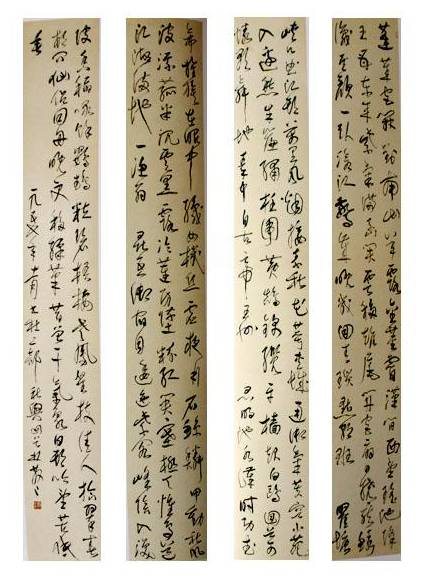 蓬萊宮闕對南山承露金莖霄漢間西望瑤池降
王母東來紫氣滿函關雲移雉尾開宮扇日繞龍鱗
識聖顏一臥滄江驚歲晚幾回青瑣點朝班 瞿塘
峽口曲江頭萬里風煙接素秋花萼夾城通御氣芙蓉小苑
入邊愁珠簾繡柱圍黃鵠錦纜牙檣起白鷗回首可
憐歌舞地秦中自古帝王州 昆明池水漢時功武
帝旌旗在眼中織女機絲虛夜月石鯨鱗甲動秋風
波漂菰米沉雲黑露冷蓮房墜粉紅關塞極天惟鳥道
江湖滿地一漁翁 昆吾御宿自逶迤紫閣峰陰入渼
陂香稻啄餘鸚鵡粒碧梧棲老鳳凰枝佳人拾翠春
相問仙侶同舟晚更移彩筆昔曾干氣象白頭吟望苦低
垂
杜工部秋興四首